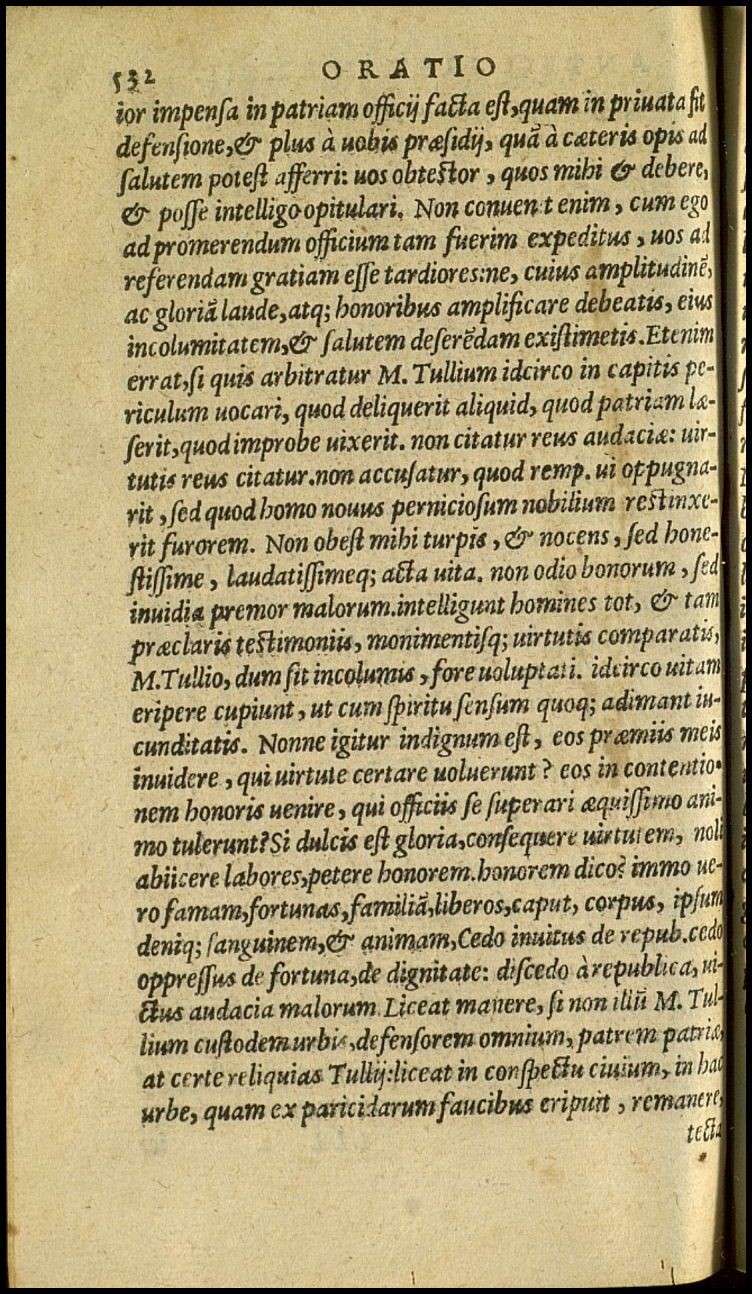 532 ORATIO
ior impensa in patriam officij facta est, quam in priuata sit
defensione, & plus à uobis præsidij, quã à cæteris opis ad
salutem potest afferri: uos obtestor, quos mihi & debere,
& posse intelligo opitulari. Non conuenit enim, cum ego
ad promerendum officium tam fuerim expeditus, uos ad
referendam gratiam esse tardiores: ne, cuius amplitudinẽ,
ac gloriã laude, atq; honoribus amplificare debeatis, eius
incolumitatem, & salutem deserẽdam existimetis. Etenim
errat, si quis arbitratur M. Tullium idcirco in capitis pe-
riculum uocari, quod deliquerit aliquid, quod patriam læ-
serit, quod improbe uixerit. non citatur reus audaciæ: uir-
tutis reus citatur. non accusatur, quod remp. ui oppugna-
rit, sed quod homo nouus perniciosum nobilium restinxe-
rit furorem. Non obest mihi turpis, & nocens, sed hone-
stissime, laudatissimeq; acta uita. non odio bonorum, sed
inuidia premor malorum. intelligunt homines tot, & tam
præclaris testimoniis, monimentisq; uirtutis comparatis,
M. Tullio, dum sit incolumis, fore uoluptati. idcirco uitam
eripere cupiunt, ut cum spiritu sensum quoq; adimant iu-
cunditatis. Nonne igitur indignum est, eos præmiis meis
inuidere, qui uirtute certare uoluerunt? eos in contentio-
nem honoris uenire, qui officiis se superari æquissimo ani-
mo tulerunt? Si dulcis est gloria, consequere uirtutem, noli
abiicere labores, petere honorem. honorem dico? immo ue-
ro famam, fortunas, familiã, liberos, caput, corpus, ipsum
deniq; sanguinem, & animam, Cedo inuitus de repub. cedo
oppressus de fortuna, de dignitate: discedo à republica, ui-
ctus audacia malorum. Liceat manere, si non illũ M. Tul-
lium custodem urbis, defensorem omnium, patrem patriæ,
at certe reliquias Tullij: liceat in conspectu ciuium, in hac
urbe, quam ex paricidarum faucibus eripuit, remanere,
tecta